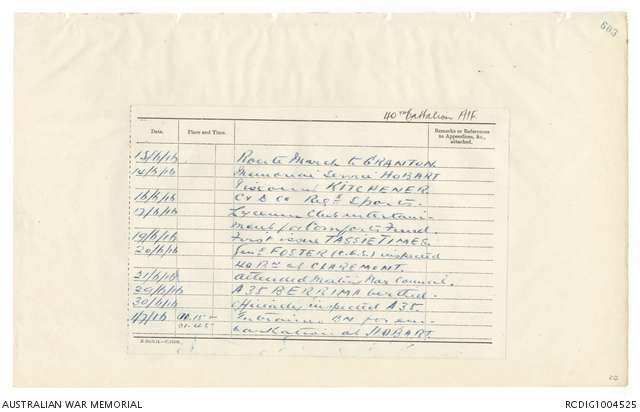 603
40th Battalion AIF.
Date. Place and Time. Remarks or References to Appendices, &c., attached.
13/6/16 Route March to GRANTON.
14/6/16 Memorial Service HOBART
KITCHENER
16/6/16 C & D Co Sports.
17/6/16 Lyceum Club entertain-
ment f/a Comforts Fund.
19/6/16 First issue TASSIE TIMES.
20/6/16 Genl FOSTER (C.G.S.) inspected
40 Bn at CLAREMONT.
21/6/16 attended War Council.
29/6/16 A35 BERRIMA berthed.
30/6/16 officially inspected A35.
1/7/16 Entrained Bn for em-
barkation at HOBART.
AUSTRALIAN WAR MEMORIAL
RCDIG1004525